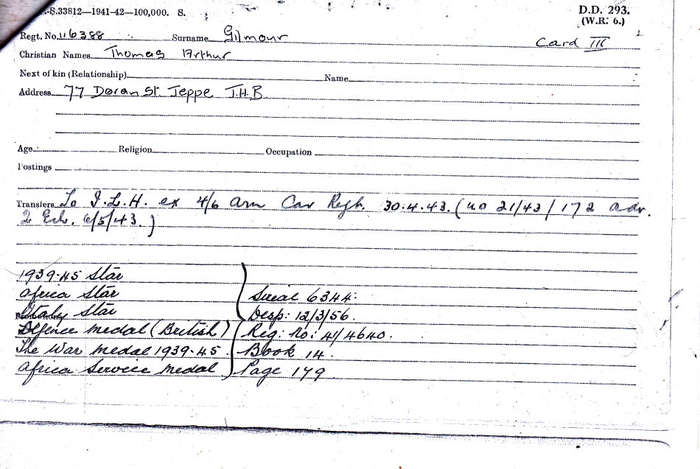 -S.33812—1941-42—100,000. S.
D.D. 293.
(W.R. 6.)
Regt. No. 116388 Surname Gilmour
Card III
Christian Names Thomas Arthur
Next of kin (Relationship) Name
Address 77 Doran St. Jeppe J.H.B
Age Religion Occupation
Postings
Transfers To I.L.H. ex 4/6 Arm Car Regt. 30.4.43. (no 21/43/172 adv.
2 Ech. 6/5/43.)
1939-45 Star
Africa Star Serial 6344.
Italy Star Desp: 12/3/56.
Defence Medal (British) Reg: No: 41/4640.
The War Medal 1939-45. Book 14.
Africa Service Medal Page 179